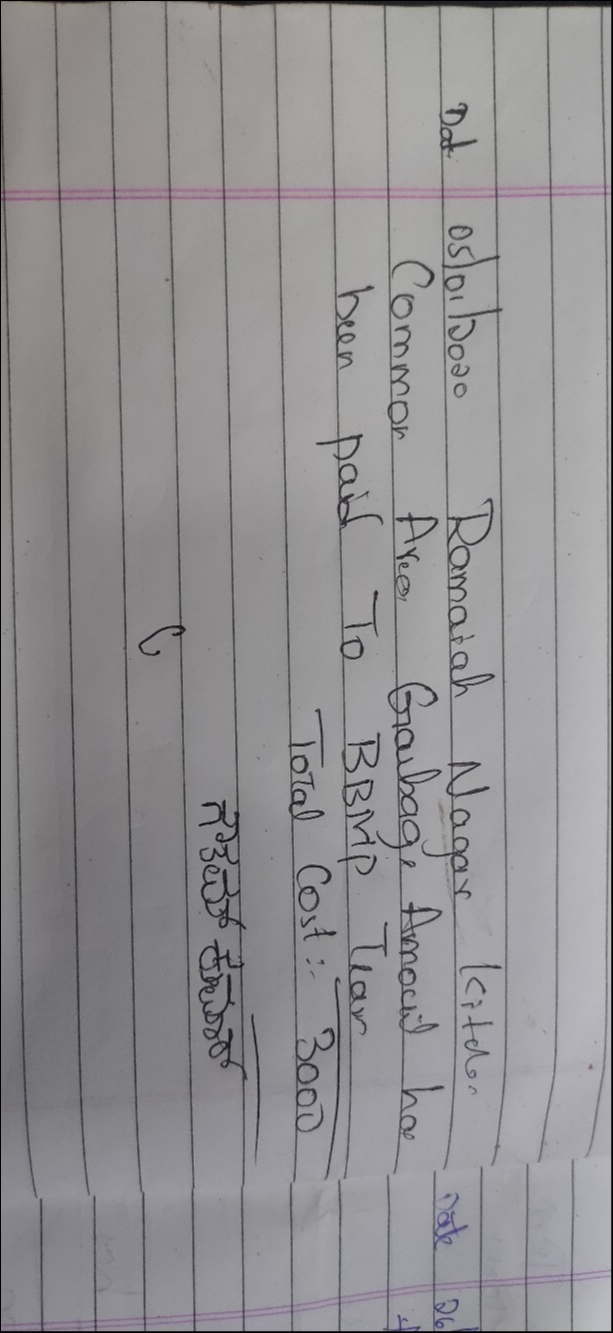 Dat 05/01/2020 Ramaiah Nagar kitda.
Common Area Garbage Amount ha
been paid To BBMP Tiar
Total Cost:- 3000
ಗೌತಮ್ ಕುಮಾರ್
Date 26/